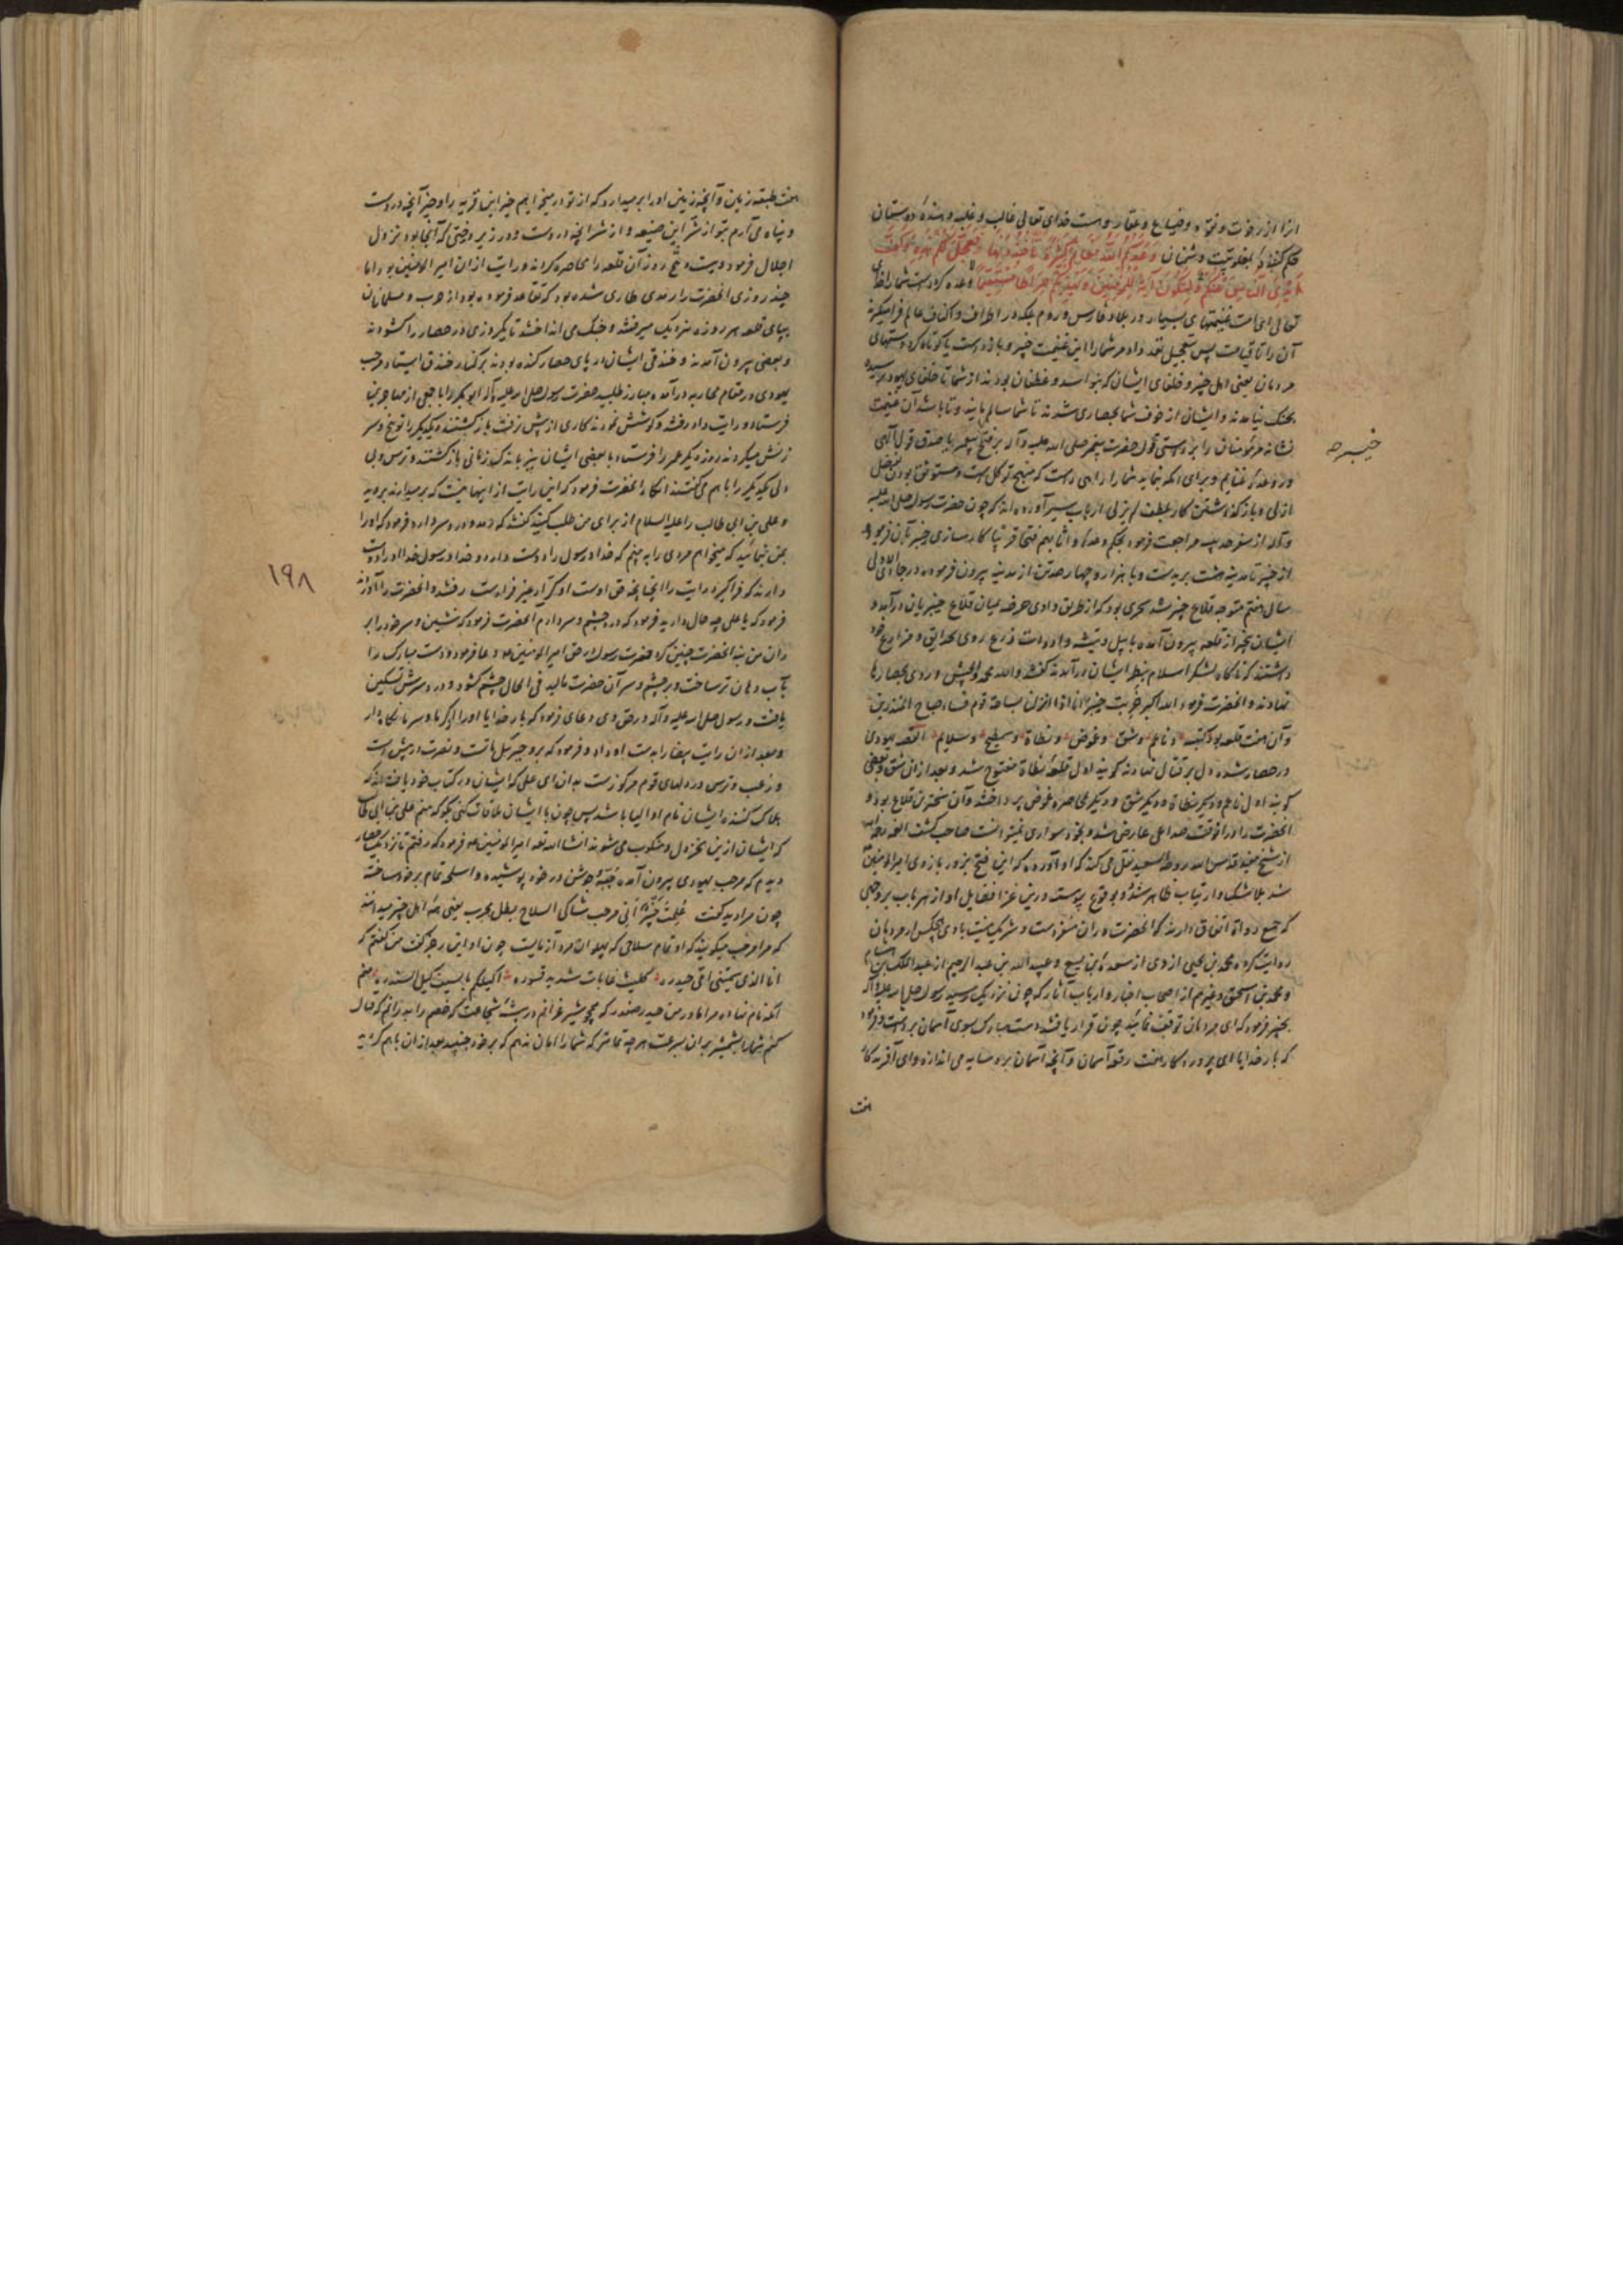 انرا از رخوت و نقود و ضیاع و عقار و هست خدای تعالی غالب و غلبه دهنده دوستان
حکم کننده بمغلوبیت دشمنان وَعَدَكُمُ اللَّهُ مَغَانِمَ كَثِيرَةً تَأْخُذُونَهَا فَعَجَّلَ لَكُمْ هَذِهِ وَكَفَّ
أَيْدِيَ النَّاسِ عَنْكُمْ وَلِتَكُونَ آيَةً لِلْمُؤْمِنِينَ وَيَهْدِيَكُمْ صِرَاطًا مُسْتَقِيمًا وعده کرده است شما را خدای
تعالی غنیمتهای بسیار در بلاد فارس و روم بلکه در اطراف و اکناف عالم فرا میگیرید
آن را تا قیامت پس بتعجیل نقد داد مر شما را این غنیمت خیبر و باز داشت یا کوتاه کرد دستهای
مردمان یعنی اهل خیبر و خلفای ایشان که بنو اسد و غطفان بودند از شما تا خلفای یهود
بجنک نیامدند و ایشان از خوف شما بحصاری شدند تا شما سالم بمانید و تا باشد آن غنیمت
نشانه مر مؤمنان را بر درستی قول حضرت پیغمبر صلی الله علیه و آله بر فتح خیبر یا صدق قول الهی
در وعده غنایم و برای آنکه بنماید شما را راه راست که منهج توکل است و مستوثق بودن بفضل
ازلی و باز گذاشتن کار بلطف لم یزلی ارباب سیر آورده اند که چون حضرت رسول صلی الله علیه
و آله از سفر حدیبیه مراجعت فرمود بحکم وعده و اثابهم فتحا قریبا کارسازی خیبر
از خیبر تا مدینه هشت برید است و با هزار و چهار صد تن از مدینه بیرون فرموده در جمادی الاولی
سال هفتم متوجه قلاع خیبر شد سحری بود که از طریق وادی حرضه میان قلاع خیبریان درآمد و
ایشان بیخبر از قلعه بیرون آمده با بیل و تیشه و ادوات زرع روی بحدایق و مزارع خود
داشتند که ناکاه لشکر اسلام بنظر ایشان درآمدند کفتند والله محمد والجیش و روی بحصارها
نهادند و انحضرت فرمود الله اکبر خَرِبَت خیبر انا اذا انزلنا بساحة قوم فساء صباح المنذرین
و آن هفت قلعه بود کتیبه و ناعم و شق و غموض و نطاة و سطیح و سلالم القصه یهودی
در حصار شده دل بر قتال نهادند کویند اول قلعه نطاة مفتوح شد و بعد از آن شق و بعضی
کویند اول ناعم و دیکر نطاة و دیکر شق و دیکر بمحاصره غموض پرداختند و آن سخترین قلاع بود و
انحضرت را در آنوقت صداعی عارض شد و بخود سواری نمیتوانست صاحب کشف الغمه رحمه الله
از شیخ مفید قدس الله روحه السعید نقل می کند که او آورده که این فتح بزور بازوی امیرالمومنین
شد بلا شک و ارتیاب ظاهر شد و بوقوع پیوست و درین غزا فضایل او از هر باب بر وجهی
که جمیع رواة اتفاق دارند که آنحضرت در آن متفرد است و شریک نیست با وی هیچکس از مردمان
روایت کرده محمد بن یحیی ازدی از مسعده بن یسع و عبید الله بن عبدالرحیم از عبدالملک بن هشام
و محمد بن اسحق و غیرهم از اصحاب اخبار و ارباب آثار که چون نزدیک رسید رسول صلی الله علیه و آله
بخیبر فرمود که ای مردمان توقف نمائید چون قرار یافتند دست مبارک بسوی آسمان برداشت و فرمود
که بار خدایا ای پروردکار هفت رقعه آسمان و آنچه آسمان برو سایه می اندازد و ای آفریدکار
هفت
خیبر
هفت طبقه زمین و آنچه زمین او را بر میدارد که از تو در میخواهیم خیر این قریه را و خیر آنچه در وست
و پناه می آرم بتو از شر این ضیعه و از شر انچه در وست و در زیر درختی که آنجا بود نزول
اجلال فرمود و بیست و پنج روز آن قلعه را محاصره کردند و رایت از ان امیر المومنین بود اما
چند روزی انحضرت را رمدی طاری شده بود که تقاعد فرموده بود از حرب و مسلمانان
بپای قلعه هر روزه نزدیک میرفتند و جنک می انداختند تا یکروزی در حصار را کشودند
و بعضی بیرون آمدند و خندقی ایشان در پای حصار کنده بودند بر کنار خندق ایستاد مرحب
یهودی در مقام محاربه درآمده مبارز طلبید حضرت رسول صلی الله علیه و آله ابوبکر را با جمعی از مهاجرین
فرستاد و رایت داد رفتند و کوشش نمودند کاری از پیش نرفت باز کشتند و یکدیکر را توبیخ و سر
زنش میکردند روز دیکر عمر را فرستاد با بعضی ایشان نیز باندک زمانی بازکشتند و ترس و بی
دلی یکدیکر را با هم میکفتند انکاه انحضرت فرمود که این رایت از اینها نیست که بر میدارند بروید
و علی بن ابی طالب را علیه السلام از برای من طلب کنید کفتند که رمد دارد فرمود که او را
بمن نمائید که میخواهم مردی را به بینم که خدا و رسول را دوست دارد و خدا و رسول خدا او را دوست
دارند که فراکیرد رایت را آنچنانچه حق اوست او کرّار غیر فرار است رفتند و انحضرت را آوردند
فرمود که یا علی چه حال دارید فرمود که درد چشم و سر دارم انحضرت فرمود که بنشین و سر خود را بر
ران من بنه انحضرت چنین کرد حضرت رسول در حق امیر المومنین دعا فرمود و دست مبارک را
بآب دهان تر ساخت و بر چشم و سر آن حضرت مالید فی الحال چشم کشود و درد سرش تسکین
یافت و رسول صلی الله علیه و آله در حق وی دعای فرمود که بار خدایا او را از کرما و سرما نکاه دار
و بعد از ان رایت بیضا را بدست او داد و فرمود که برو جبرئیل با تست و نصرت در پیش است
و رعب و ترس در دلهای قوم مرکوز است بدان ای علی که ایشان در کتاب خود یافته اند که
هلاک کننده ایشان نام او الیا باشد پس چون با ایشان ملاقات کنی بکو که منم علی بن ابی طالب
که ایشان ازین مخذول و منکوب می شوند انشاالله تعه امیر المومنین فرمود که رفتم تا نزدیک حصار
دیدم که مرحب یهودی بیرون آمده جُبّه جوشن در خود پوشیده و اسلحه تمام بر خود ساخته
چون مرا دید کفت عَلِمَتْ خَیْبَرُ اَنّی مرحب شاکی السلاح بطل مجرب یعنی اهل خیبر میدانند
که مرا مرحب میکویند که او تمام سلاحی که پهلوان مرد آزمایست چون او این رجز کفت من کفتم که
انا الذی سمتنی امی حیدره کلیث غابات شدید قسوره اکیلکم بالسیف کیل السندره منم
آنکه نام نهاده مرا مادر من حیدر صفدر که همچو شیر غرانم در بیشه شجاعت که خصم را بدرانم که قتال
کنم شما را بشمشیر بران بسرعت هر چه تمامتر که شما را امان ندهم که بر خود جنبید بعد از ان باهم
۱۹۸